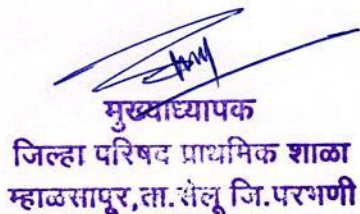 मुख्याध्यापक
जिल्हा परिषद प्राथमिक शाळा
म्हाळसापुर,ता.सेलू जि.परभणी